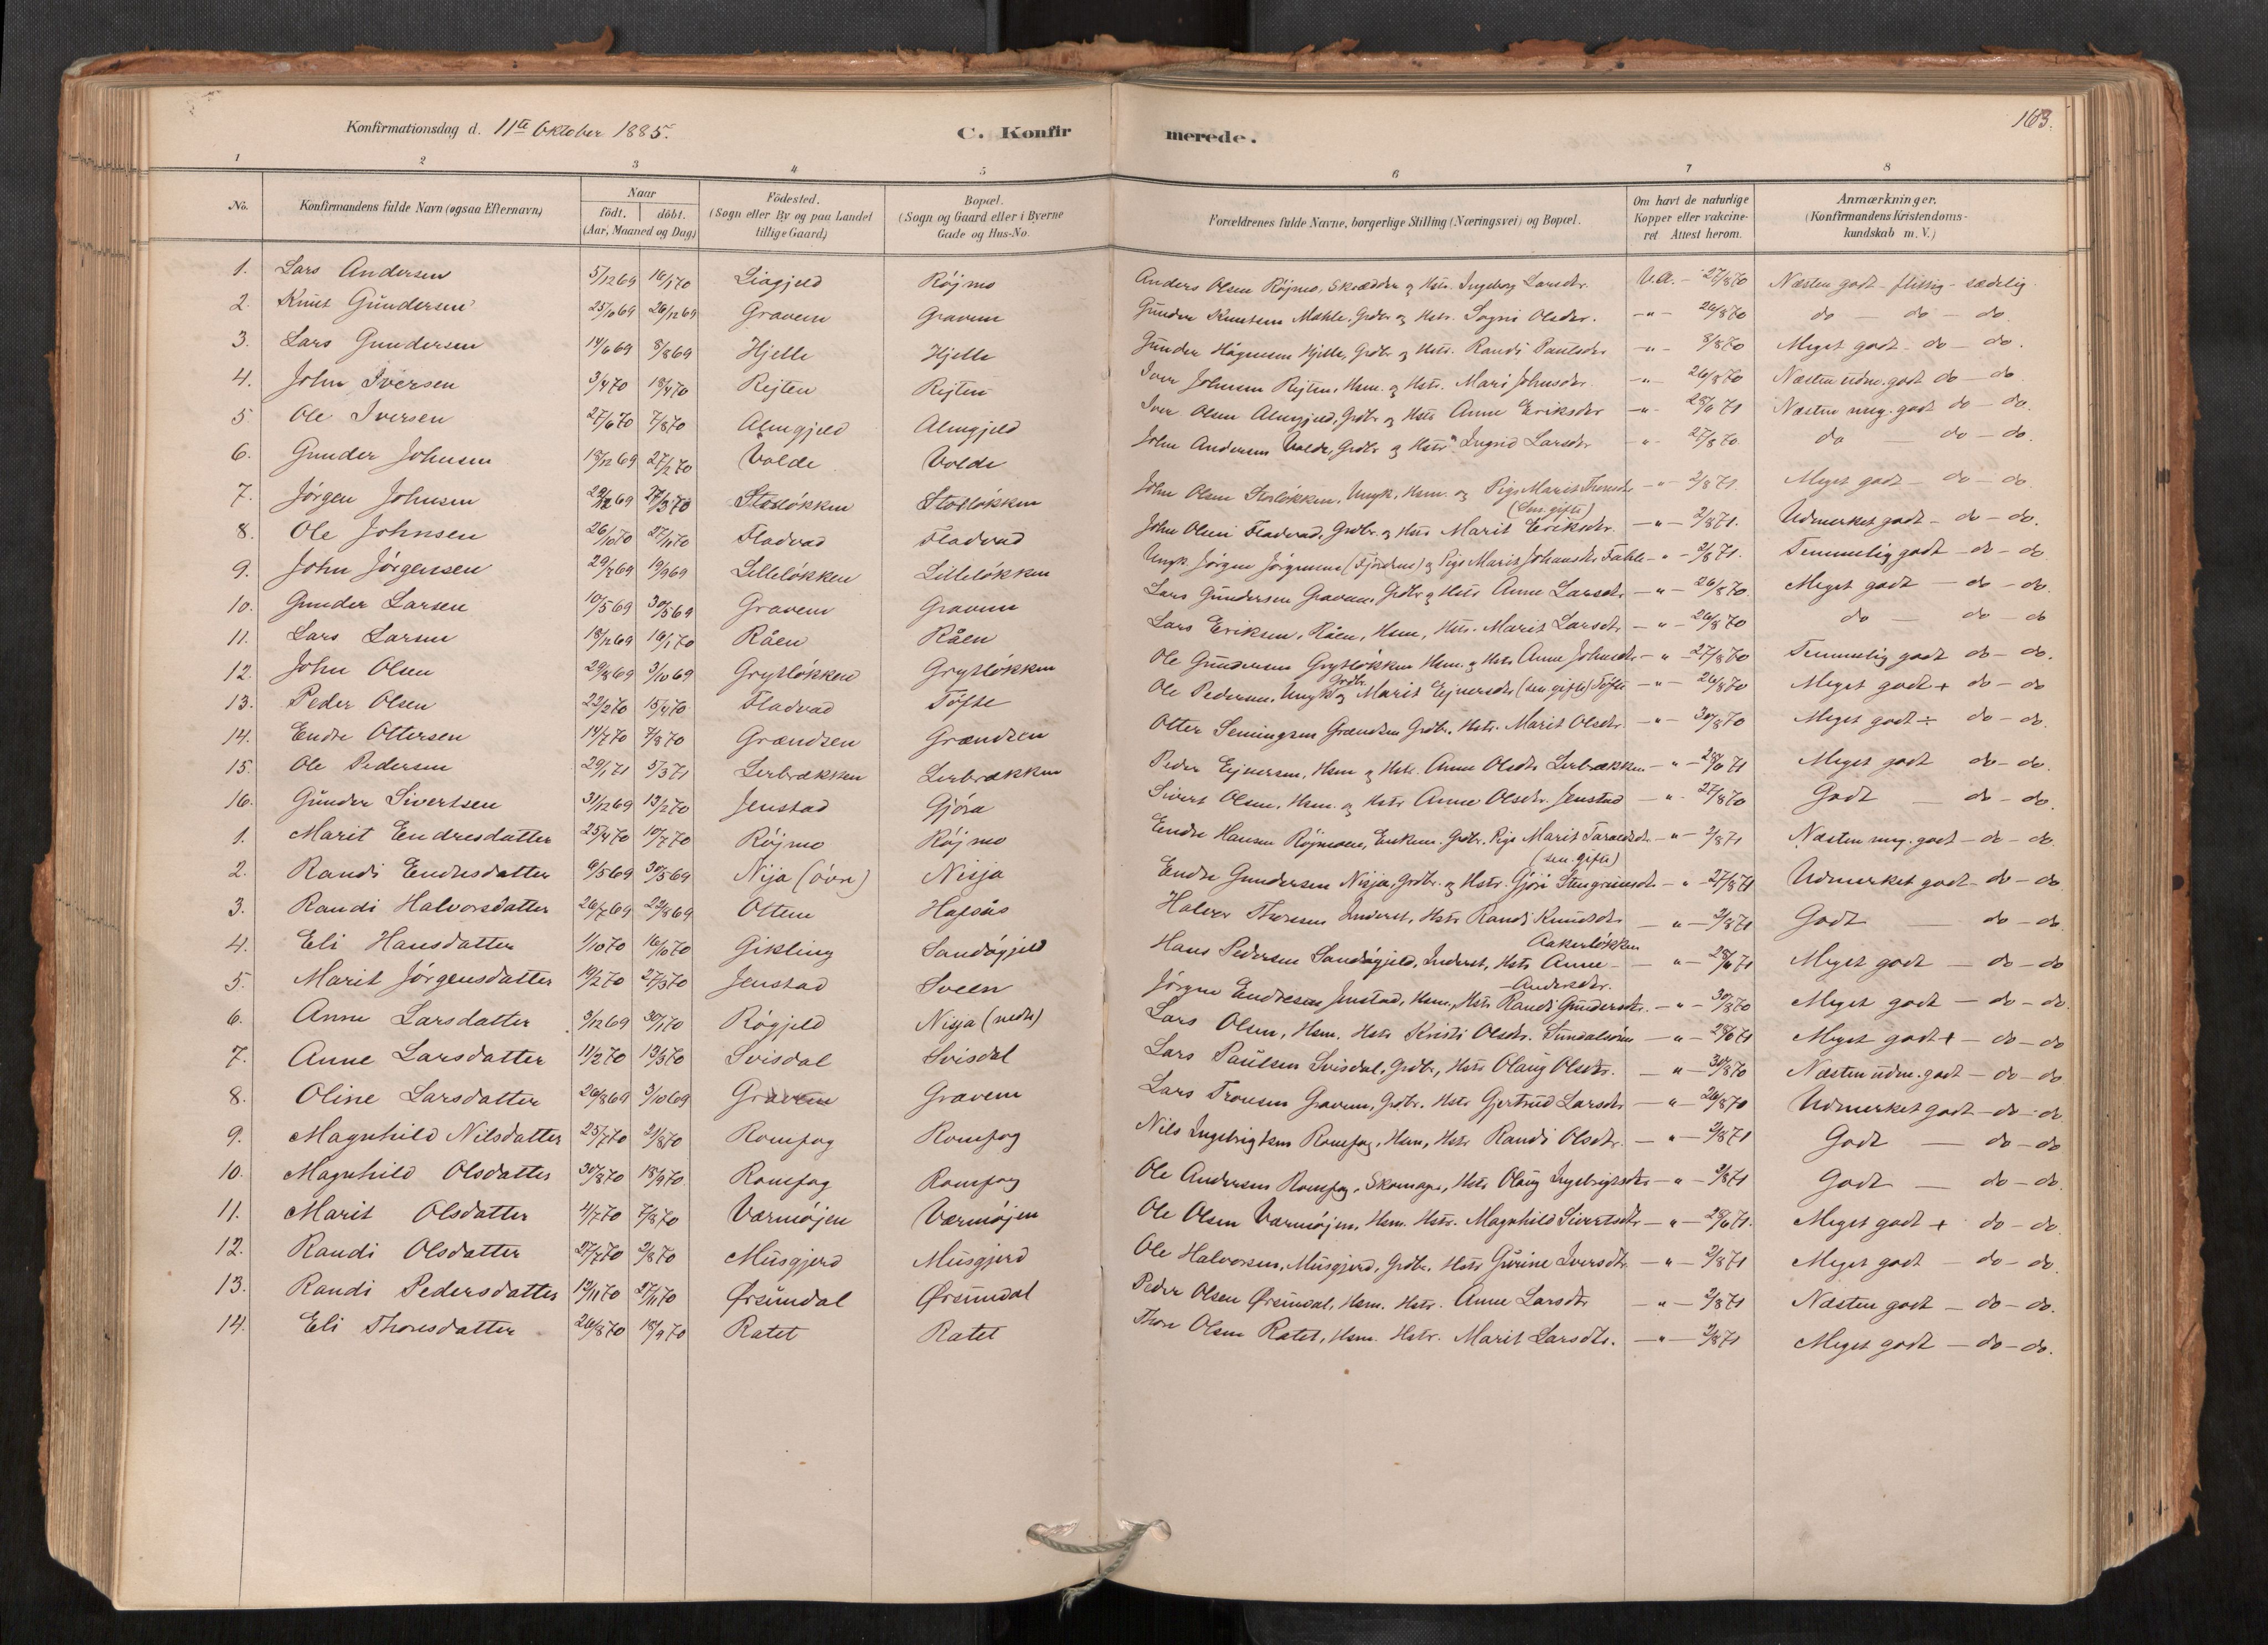 163.
Konfirmationsdag d. 11te Oktober 1885. C. Konfirmerede.
1 2 3 4 5 6 7 8
No. Konfirmandens fulde Navn (ogsaa Efternavn) Naar födt. döbt. (Aar, Maaned og Dag) Födested. (Sogn eller By og paa Landet tillige Gaard) Bopæl. (Sogn og Gaard eller i Byerne Gade og Hus-No. Forældrenes fulde Navne, borgerlige Stilling (Næringsvei) og Bopæl. Om havt de naturlige Kopper eller vakcineret Attest herom. Anmærkninger. (Konfirmandens Kristendomskundskab m. V.)
1. Lars Andersen 5/12 69 16/1 70 Liagjeld Röjmo Anders Olsen Röjmo, Skrædder og Hstr. Ingeborg Larsdtr. V.A. - 27/8 70 Næsten godt - flittig - sædelig
2. Knut Gundersen 25/10 69 26/12 69 Gravem Gravem Gunder Knutsen Mahle, Grdbr og Hstr. Sogni Olsdtr. - " - 26/8 70 do - do - do.
3. Lars Gundersen 14/6 69 8/8 69 Hjelle Hjelle Gunder Hågensen Hjelle, Grdbr og Hstr. Randi Paulsdtr - " - 8/8 70 Meget godt - do - do.
4. John Iversen 3/4 70 18/4 70 Rejten Rejten Iver Johnsen Rejten, Hsm. og Hstr. Mari Johnsdtr - " - 26/8 70 Næsten udm. godt do - do
5 Ole Iversen 27/6 70 7/8 70 Almgjeld Almgjeld Iver Olsen Almgjeld, Grdbr og Hstr Anne Eriksdtr - " - 28/6 71 Næsten meg. godt do - do
6. Gunder Johnsen 18/12 69 27/2 70 Volde Volde John Andersen Volde, Grdbr og Hstr Ingrid Larsdtr - " - 27/8 70 do do - do.
7. Jörgen Johnsen 22/12 69 27/3 70 Storlökken Storlökken John Olsen Storlökken, Ungk, Hsm. og Pige Marit Thoresdtr (Sen. gifte) - " - 2/8 71 Meget godt - do - do.
8. Ole Johnsen 26/10 70 27/11 70 Fladvad Fladvad John Olsen Fladvad, Grdbr. og Hstr Marit Eriksdtr. - " - 2/8 71. Udmerket godt - do - do.
9. John Jörgensen 29/8 69 19/9 69 Lillelökken Lillelökken Ungk. Jörgen Jörgensen (Fjordens) og Pige Marit Johansdtr Fahle - " - 2/8 71. Temmelig godt - do - do
10. Gunder Larsen 10/5 69 30/5 69 Gravem Gravem Lars Gundersen Gravem, Grdbr og Hstr Anne Larsdtr - " - 26/8 70. Meget godt - do - do.
11. Lars Larsen 18/12 69 16/1 70 Råen Råen Lars Eriksen, Råen, Hsm, Hstr. Marit Larsdtr - " - 26/8 70 do - do - do
12. John Olsen 29/8 69 3/10 69 Grytlökken Grytlökken Ole Gundersen Grytlökken Hsm. og Hstr Anne Johnsdtr - " - 27/8 70 Temmelig godt do - do.
13. Peder Olsen 22/2 70 15/4 70 Fladvad Töfte Ole Pedersen, Ungk Grdbr. og Marit Ejnersdtr (sen gifte) Töfte - " - 26/8 70 Meget godt + do - do
14. Endre Ottersen 14/7 70 7/8 70 Grændsen Grændsen Otter Semingsen Grændsen Grdbr. Hstr. Marit Olsdtr. - " - 30/8 70 Meget godt ÷ do - do.
15. Ole Pedersen 29/1 71 5/3 71 Lerbrækken Lerbrækken Peder Ejnersen, Hsm og Hstr. Anne Olsdtr Lerbrækken - " - 28/6 71 Meget godt do - do.
16. Gunder Sivertsen 31/12 69 13/2 70 Jenstad Gjöra Sivert Olsen, Hsm. og Hstr Anne Olsdtr. Jenstad - " - 27/8 70 Godt - do - do.
1. Marit Endresdatter 25/4 70 10/7 70 Röjmo Röjmo Endre Hansen Röjmoen, Enkem. Grdbr. Pige Marit Taraldsdtr (sen. gifte) - " - 2/8 71 Næsten meg. godt - do - do.
2. Randi Endresdatter 9/5 69 30/5 69 Nija (övre) Nisja Endre Gundersen Nisja, Grdbr. og Hstr. Gjöri Stengrimsdtr - " - 27/8 71 Udmerket godt - do - do
3. Randi Halvorsdatter 26/7 69 22/8 69 Ottem Hafsås Halvor Thoresen Inderst, Hstr Randi Knudsdtr - " - 2/8 71 Godt - do - do.
4. Eli Hansdatter 1/10 70 16/10 70 Gikling Sandågjeld Hans Pedersen Sandågjeld, Inderst, Hstr Anne - Andersdtr. Aakerlökken - " - 28/6 71 Meget godt - do - do
5. Marit Jörgensdatter 19/2 70 27/3 70 Jenstad Sveen Jörgen Endresen Jenstad, Hsm, Hstr Randi Gundersdtr. - " - 30/8 70 Meget godt - do - do.
6. Anne Larsdatter 9/12 69 30/1 70 Rögjeld Nisja (nedre) Lars Olsen, Hsm. Hstr Kristi Olsdtr. Sundalsören - " - 28/6 71 Meget godt + - do - do
7. Anne Larsdatter 11/2 70 13/3 70 Svisdal Svisdal Lars Paulsen Svisdal, Grdbr, Hstr Olaug Olsdtr. - " - 30/8 70 Næsten udm. godt - do - do
8. Oline Larsdatter 26/8 69 3/10 69 Gravem Gravem Lars Tronsen Gravem, Grdbr. Hstr Gjertrud Larsdtr - " - 26/8 70 Udmerket godt - do - do
9. Magnhild Nilsdatter 25/7 70 21/8 70 Romfog Romfog Nils Ingebrigtsen Romfog, Hsm, Hstr Randi Olsdtr. - " - 2/8 71 Godt - do - do
10. Magnhild Olsdatter 30/8 70 18/9 70 Romfog Romfog Ole Andersen Romfog, Skomager, Hstr Olaug Ingebrigtsdtr - " - 2/8 71 Godt - do - do.
11. Marit Olsdatter 4/7 70 7/8 70 Værmöjen Værmöjen Ole Olsen Værmöjen, Hsm. Hstr. Magnhild Sivertsdtr - " - 28/6 71. Meget godt + do - do.
12. Randi Olsdatter 27/7 70 2/8 70 Musgjerd Musgjerd Ole Halvorsen, Musgjerd, Grdbr. Hstr Gurine Iversdtr - " - 2/8 71 Meget godt - do - do.
13. Randi Pedersdatter 12/11 70 27/11 70 Ørsundal Ørsundal Peder Olsen Ørsundal, Hsm. Hstr. Anne Larsdtr - " - 2/8 71 Næsten godt - do - do.
14. Eli Thoresdatter 26/8 70 18/9 70 Ratet Ratet Thore Olsen Ratet, Hsm. Hstr. Marit Larsdtr. - " - 2/8 71 Meget godt - do - do.